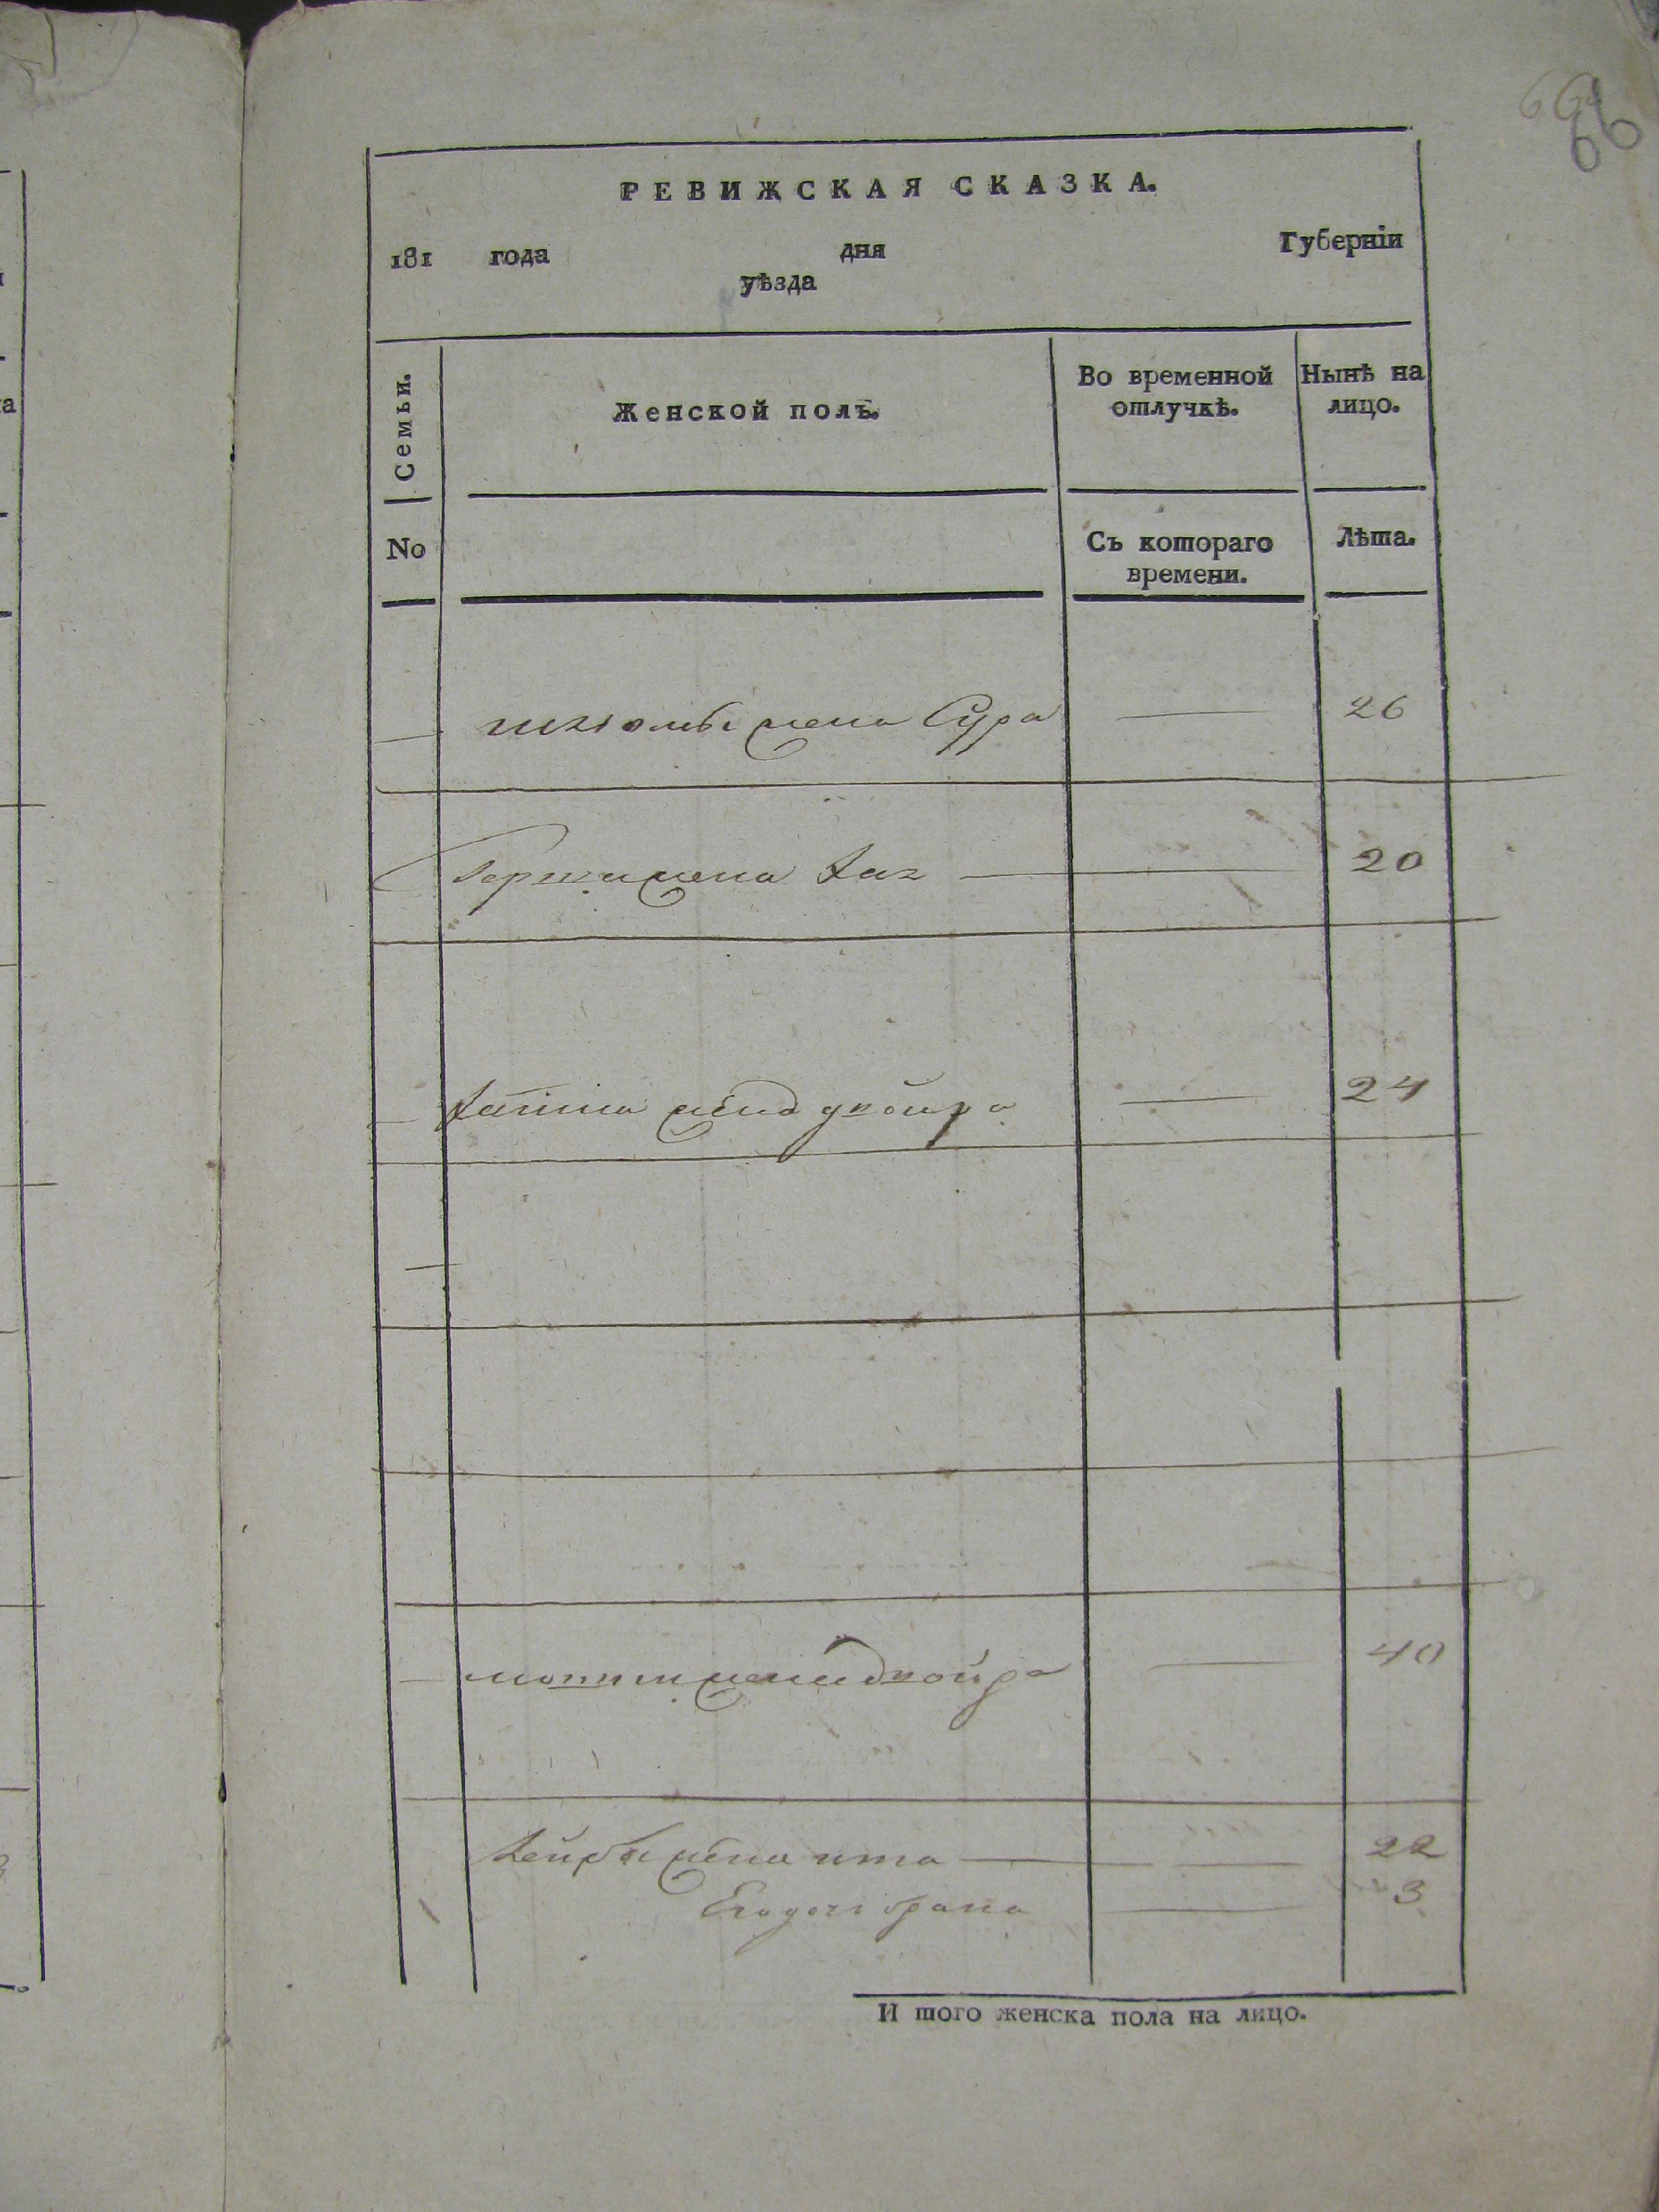 66
66
РЕВИЖСКАЯ СКАЗКА.
181 года дня Губерніи
уѣзда
Семьи.
Женской полъ.
Во временной отлучкѣ.
Нынѣ на лицо.
No
Съ котораго времени.
Лѣта.
жена Сура 26
жена 20
жена двойра 24
жена двойра 40
Лейбы жена ита 22
Его дочь брана 3
И того женска пола на лицо.